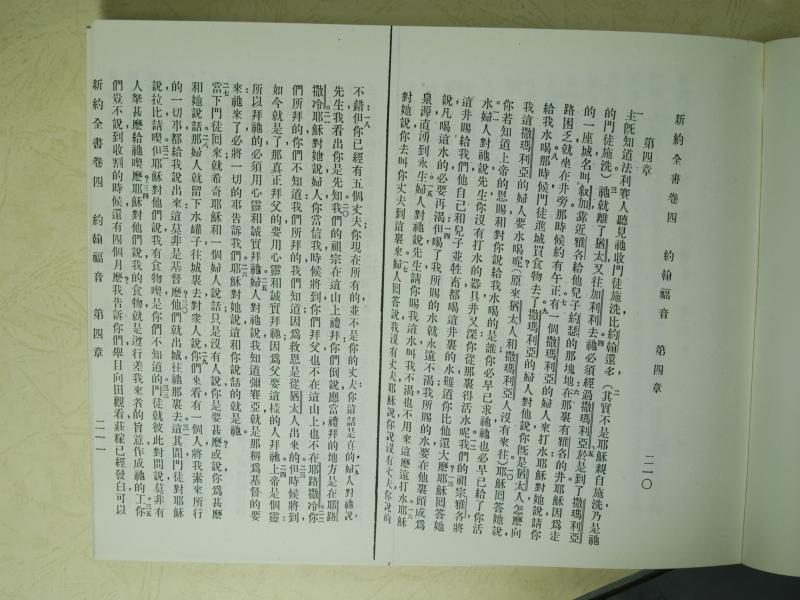 新約全書卷四 約翰福音 第四章 二一〇
第四章
主既知道法利賽人聽見祂收門徒施洗比約翰還多（其實不是耶穌親自施洗乃是祂
的門徒施洗）祂就離了猶太又往加利利去祂必須經過撒瑪利亞於是到了撒瑪利亞
的一座城名叫敍加靠近雅各給他兒子約瑟的那塊地在那裏有雅各的井耶穌因爲走
路困乏就坐在井旁那時候約有午正有一個撒瑪利亞的婦人來打水耶穌對她說請你
給我水喝那時候門徒進城買食物去了撒瑪利亞的婦人對祂說你既是猶太人怎麼向
我這撒瑪利亞的婦人要水喝呢（原來猶太人和撒瑪利亞人沒有來往）耶穌回答她說
你若知道上帝的恩賜和對你說給我水喝的是誰你必早已求祂祂也必早已給了你活
水婦人對祂說先生你沒有打水的器具井又深你從那裏得活水呢我們的祖宗雅各將
這井賜給我們他自己和兒子並牲畜都喝這井裏的水難道你比他還大麼耶穌回答她
說凡喝這水的必要再渴但喝了我所賜的水就永遠不渴我所賜的水要在他裏頭成爲
泉源直湧到永生婦人對祂說先生請你賜我這水叫我不渴也不用來這麼遠打水耶穌
對她說你去叫你丈夫到這裏來婦人回答說我沒有丈夫耶穌說你說沒有丈夫你說的
不錯但你已經有五個丈夫你現在所有的並不是你的丈夫你這話是真的婦人對祂說
先生我看出你是先知我們的祖宗在這山上禮拜你們倒說應當禮拜的地方是在耶路
撒冷耶穌對她說婦人你當信我時候將到你們拜父也不在這山上也不在耶路撒冷你
們所拜的你們不知道我們所拜的我們知道因爲救恩是從猶太人出來的但時候將到
如今就是了那真正拜父的要用心靈和誠實拜祂因爲父要這樣的人拜祂上帝是個靈
所以拜祂的必須用心靈和誠實拜祂婦人對祂說我知道彌賽亞就是那稱爲基督的要
來祂來了必將一切的事告訴我們耶穌對她說這和你說話的就是祂
當下門徒回來就希奇耶穌和一個婦人說話只是沒有人說你是要甚麼或說你爲甚麼
和她說話那婦人就留下水罐子往城裏去對衆人說你們來看有一個人將我素來所行
的一切事都給我說出來這莫非是基督麼他們就出城往祂那裏去這其間門徒對耶穌
說拉比請喫但耶穌對他們說我有食物喫是你們不知道的門徒就彼此對問說莫非有
人拏甚麼給祂喫麼耶穌對他們說我的食物就是遵行差我來者的旨意作成祂的工你
們豈不說到收割的時候還有四個月麼我告訴你們舉目向田觀看莊稼已經發白可以
新約全書卷四 約翰福音 第四章 二一一